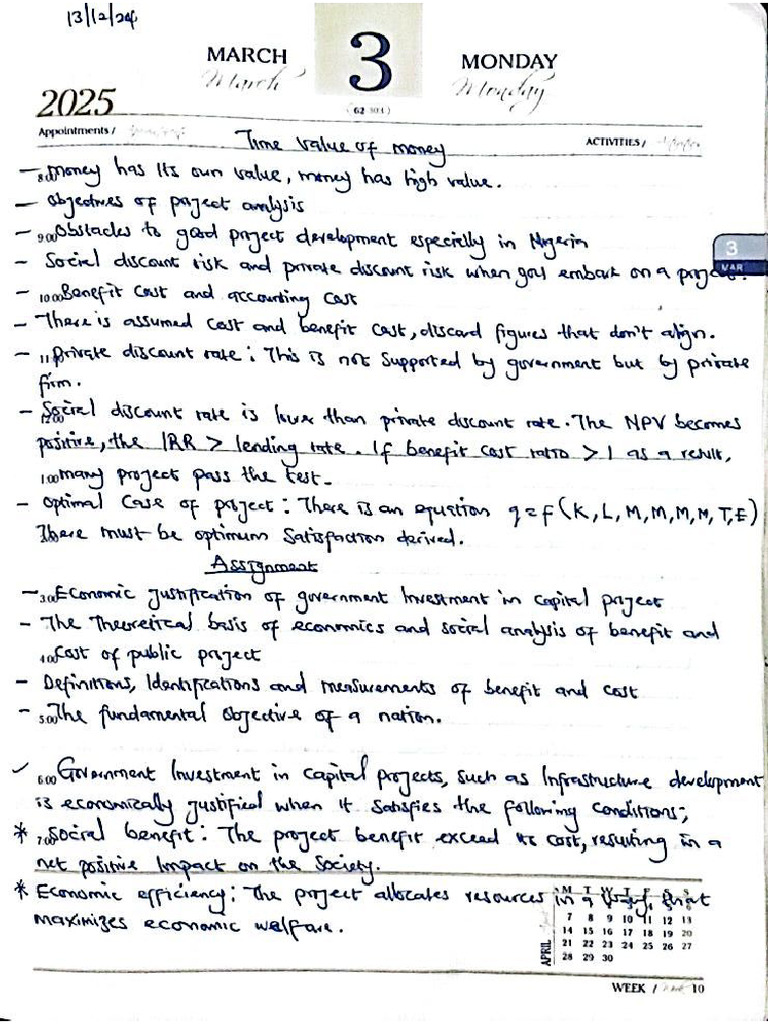 13/12/24
MARCH 3 MONDAY
March Monday
2025 (62 303)
Appointments / ACTIVITIES /
Time Value of Money
8.00 – Money has its own value, money has high value.
– Objectives of project analysis
9.00 – Obstacles to good project development especially in Nigeria
3
MAR
– Social discount risk and private discount risk when you embark on a project.
10.00 – Benefit cost and accounting cost
– There is assumed cost and benefit cost, discard figures that don't align.
11.00 – Private discount rate: This is not supported by government but by private
firm.
12.00 – Social discount rate is lower than private discount rate. The NPV becomes
positive, the IRR > lending rate. If benefit cost ratio > 1 as a result,
1.00 many project pass the test.
– Optimal Case of project: There is an equation q=f(K,L,M,M,M,M,T,E)
There must be optimum satisfaction derived.
Assignment
3.00 – Economic justification of government investment in capital project
– The Theoretical basis of economics and social analysis of benefit and
4.00 Cost of public project
– Definitions, Identifications and measurements of benefit and cost
5.00 – The fundamental objective of a nation.
6.00 ✓ Government Investment in capital projects, such as Infrastructure development
is economically justified when it satisfies the following conditions;
7.00 * Social benefit: The project benefit exceed its cost, resulting in a
net positive impact on the society.
* Economic efficiency: The project allocates resources in a way that
maximizes economic welfare.
APRIL
M T W T F S S
7 8 9 10 11 12 13
14 15 16 17 18 19 20
21 22 23 24 25 26 27
28 29 30
WEEK / 10